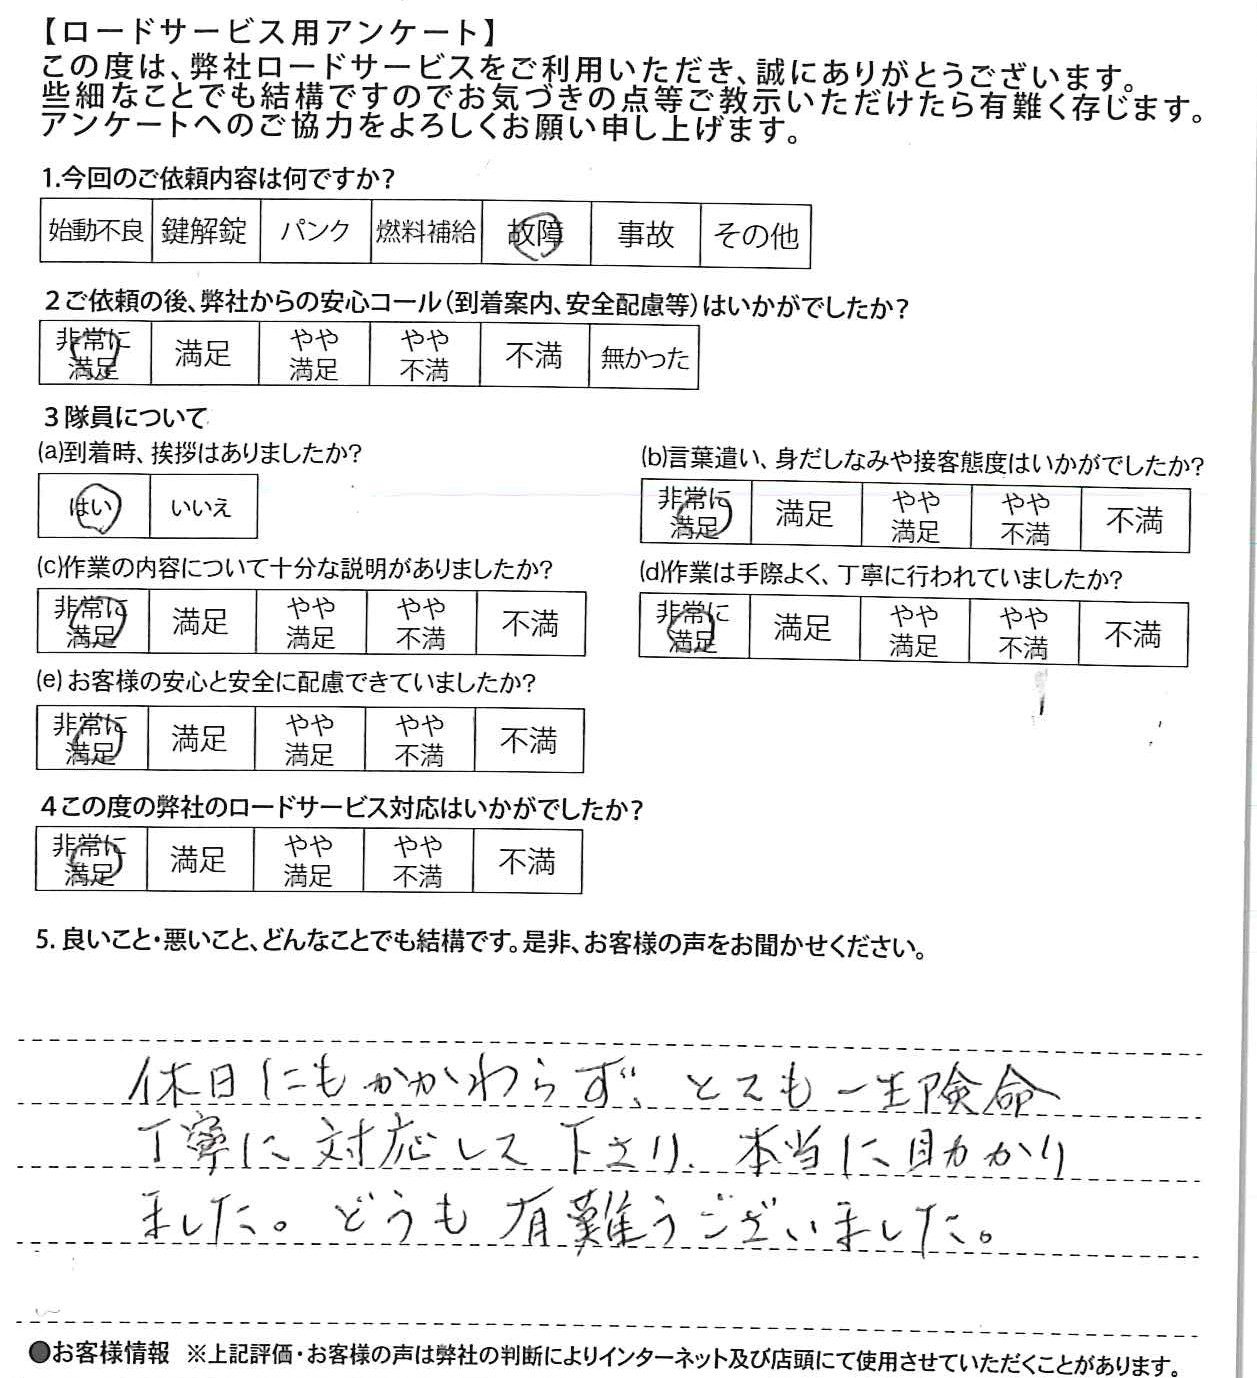 【ロードサービス用アンケート】
この度は、弊社ロードサービスをご利用いただき、誠にありがとうございます。
些細なことでも結構ですのでお気づきの点等ご教示いただけたら有難く存じます。
アンケートへのご協力をよろしくお願い申し上げます。
1.今回のご依頼内容は何ですか?
始動不良 鍵解錠 パンク 燃料補給 故障 事故 その他
2ご依頼の後、弊社からの安心コール(到着案内、安全配慮等)はいかがでしたか?
非常に満足 満足 やや満足 やや不満 不満 無かった
3隊員について
(a)到着時、挨拶はありましたか?
はい いいえ
(b)言葉遣い、身だしなみや接客態度はいかがでしたか?
非常に満足 満足 やや満足 やや不満 不満
(c)作業の内容について十分な説明がありましたか?
非常に満足 満足 やや満足 やや不満 不満
(d)作業は手際よく、丁寧に行われていましたか?
非常に満足 満足 やや満足 やや不満 不満
(e)お客様の安心と安全に配慮できていましたか?
非常に満足 満足 やや満足 やや不満 不満
4この度の弊社のロードサービス対応はいかがでしたか?
非常に満足 満足 やや満足 やや不満 不満
5. 良いこと・悪いこと、どんなことでも結構です。是非、お客様の声をお聞かせください。
休日にもかかわらず、とても一生険命
丁寧に対応して下さり、本当に助かり
ました。どうも有難うございました。
●お客様情報 ※上記評価・お客様の声は弊社の判断によりインターネット及び店頭にて使用させていただくことがあります。